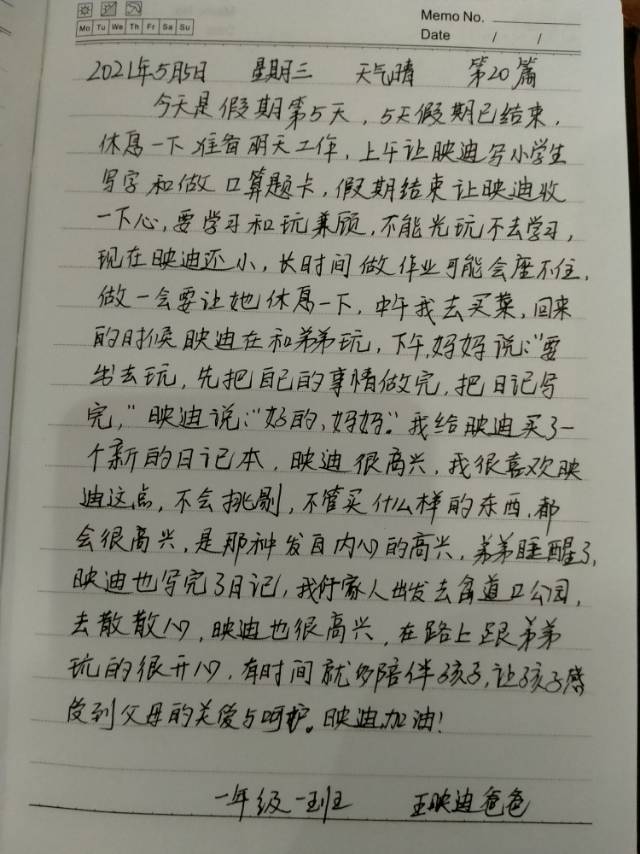 Memo No.
Mo Tu We Th Fr Sa Su
Date / /
2021年5月5日 星期三 天气晴 第20篇
今天是假期第5天，5天假期已结束，
休息一下准备明天工作，上午让映迪写小学生
写字和做口算题卡，假期结束让映迪收
一下心，要学习和玩兼顾，不能光玩不去学习，
现在映迪还小，长时间做作业可能会座不住，
做一会要让她休息一下，中午我去买菜，回来
的时候映迪在和弟弟玩，下午，妈妈说："要
出去玩，先把自己的事情做完，把日记写
完，"映迪说："好的，妈妈。"我给映迪买了一
个新的日记本，映迪很高兴，我很喜欢映
迪这点，不会挑剔，不管买什么样的东西，都
会很高兴，是那种发自内心的高兴，弟弟睡醒了，
映迪也写完了日记，我们家人出发去 道卫公园，
去散散心，映迪也很高兴，在路上跟弟弟
玩的很开心，有时间就多陪伴孩子，让孩子感
受到父母的关爱与呵护。映迪加油！
一年级一班 王映迪爸爸